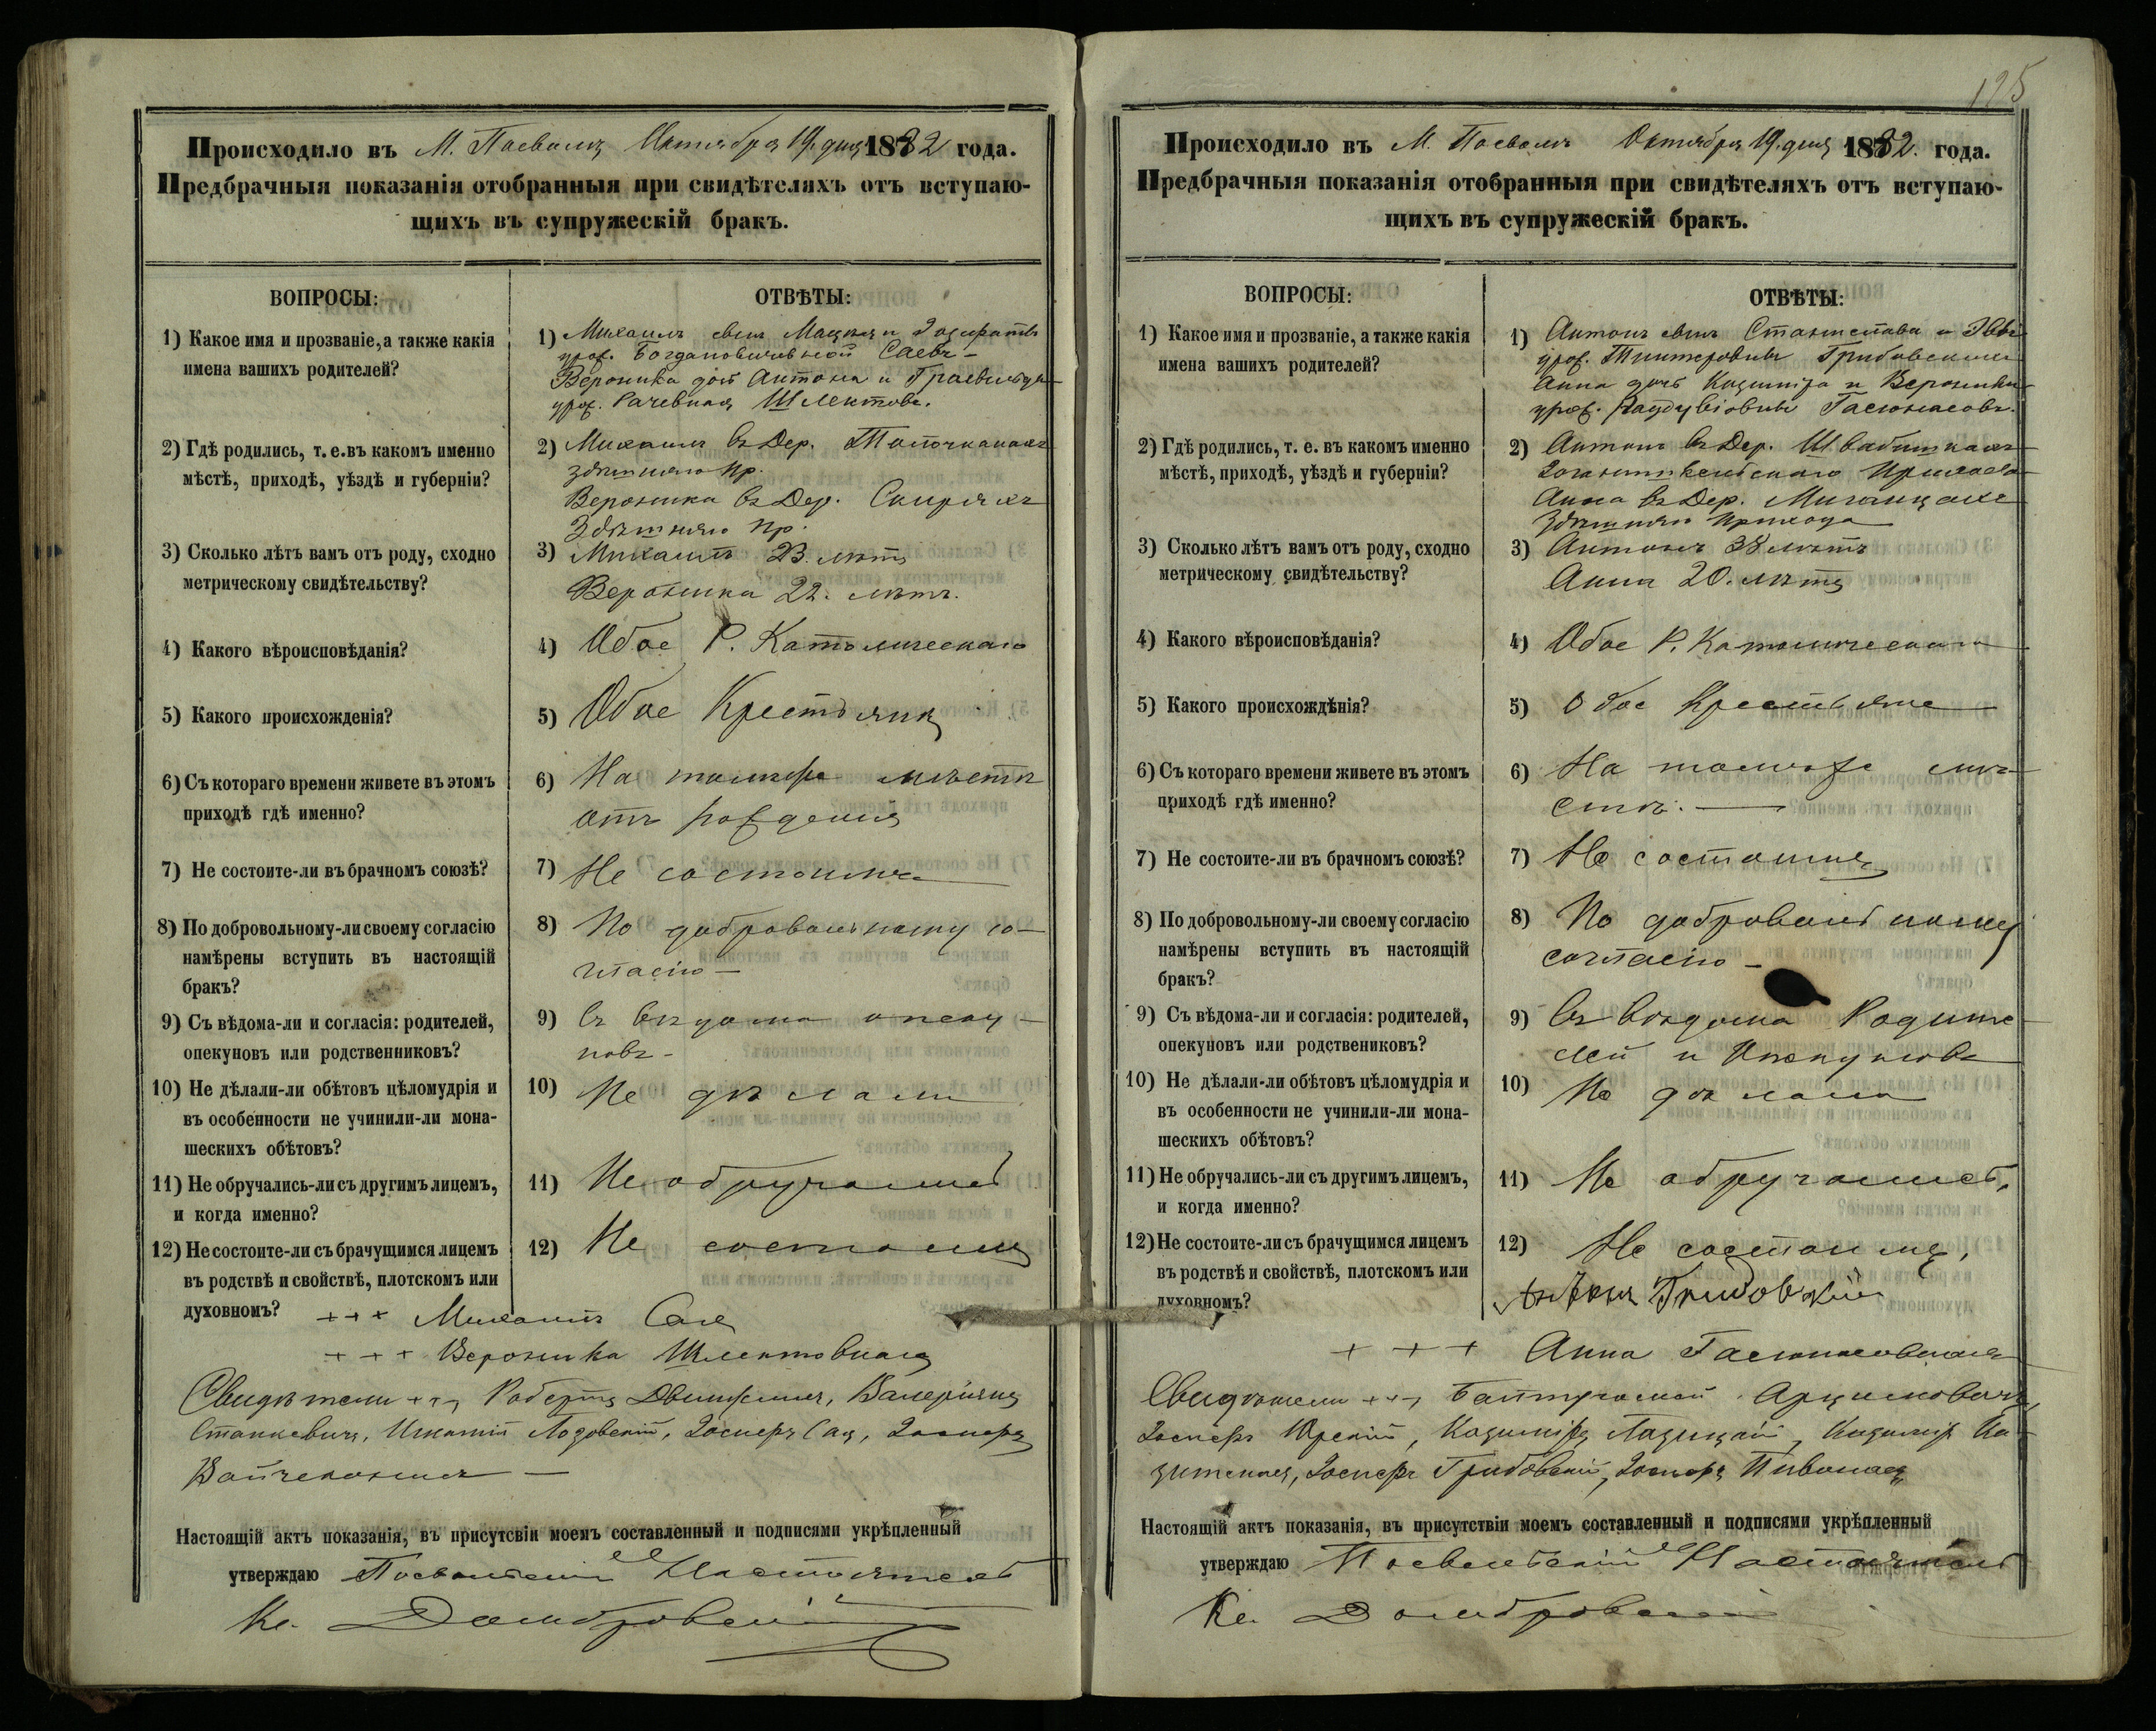 Происходило въ М. Посволь Октября 19. дня 1882 года.
Предбрачныя показанія отобранныя при свидѣтеляхъ отъ вступаю-
щихъ въ супружескій бракъ.
ВОПРОСЫ:
ОТВѢТЫ:
1) Какое имя и прозваніе, а также какія
имена вашихъ родителей?
1) Михаилъ сынъ
урож. Богдановичевной
Вероника дочь Антона и
урож.
2) Гдѣ родились, т. е. въ какомъ именно
мѣстѣ, приходѣ, уѣздѣ и губерніи?
2) Михаилъ въ Дер.
здѣшняго пр.
Вероника въ Дер.
Здѣшняго пр.
3) Сколько лѣтъ вамъ отъ роду, сходно
метрическому свидѣтельству?
3) Михаилъ 23. лѣтъ
Вероника 22. лѣтъ.
4) Какого вѣроисповѣданія?
4) Обое Р. Католическаго
5) Какого происхожденія?
5) Обое Крестьяни
6) Съ котораго времени живете въ этомъ
приходѣ гдѣ именно?
6) На томъже мѣстѣ
отъ рожденія
7) Не состоите-ли въ брачномъ союзѣ?
7) Не состоимъ
8) По добровольному-ли своему согласію
намѣрены вступить въ настоящій
бракъ?
8) По добровольному со-
гласію
9) Съ вѣдома-ли и согласія: родителей,
опекуновъ или родственниковъ?
9) Съ вѣдома опеку-
новъ
10) Не дѣлали-ли обѣтовъ цѣломудрія и
въ особенности не учинили-ли мона-
шескихъ обѣтовъ?
10) Не дѣлали
11) Не обручались-ли съ другимъ лицемъ,
и когда именно?
11) Не обручались
12) Не состоите-ли съ брачущимся лицемъ
въ родствѣ и свойствѣ, плотскомъ или
духовномъ?
12) Не состоимъ
+++ Михаилъ
+++ Вероника Шлектовная
Свидѣтели +++ Робертъ
Станкевичъ, Игнатій
Настоящій актъ показанія, въ присутсвіи моемъ составленный и подписями укрѣпленный
утверждаю Посвольскій Настоятель
Кс. Домбровскій
125
Происходило въ М. Посволь Октября 19. дня 1882. года.
Предбрачныя показанія отобранныя при свидѣтеляхъ отъ вступаю-
щихъ въ супружескій бракъ.
ВОПРОСЫ:
ОТВѢТЫ:
1) Какое имя и прозваніе, а также какія
имена вашихъ родителей?
1) Антонъ сынъ Станислава и
урож.
Анна дочь Казиміра и Вероники
урож.
2) Гдѣ родились, т. е. въ какомъ именно
мѣстѣ, приходѣ, уѣздѣ и губерніи?
2) Антонъ въ Дер.
Прихода
Анна въ Дер.
Здѣшняго прихода
3) Сколько лѣтъ вамъ отъ роду, сходно
метрическому свидѣтельству?
3) Антонъ 38 лѣтъ
Анна 20. лѣтъ
4) Какого вѣроисповѣданія?
4) Обое Р. Католическаго
5) Какого происхождѣнія?
5) Обое Крестьяне
6) Съ котораго времени живете въ этомъ
приходѣ гдѣ именно?
6) На томъже мѣ-
стѣ.
7) Не состоите-ли въ брачномъ союзѣ?
7) Не состоимъ
8) По добровольному-ли своему согласію
намѣрены вступить въ настоящій
бракъ?
8) По добровольному
согласію
9) Съ вѣдома-ли и согласія: родителей,
опекуновъ или родствениковъ?
9) Съ вѣдома Родите-
лей и Опекуновъ
10) Не дѣлали-ли обѣтовъ цѣломудрія и
въ особенности не учинили-ли мона-
шескихъ обѣтовъ?
10) Не дѣлали
11) Не обручались-ли съ другимъ лицемъ,
и когда именно?
11) Не обручались,
12) Не состоите-ли съ брачущимся лицемъ
въ родствѣ и свойствѣ, плотскомъ или
духовномъ?
12) Не состоимъ,
Грибовскій
+++ Анна
Свидѣтели +++
Юрскій, Казиміръ
Грибовскій,
Настоящій актъ показанія, въ присутствіи моемъ составленный и подписями укрѣпленный
утверждаю Посвольскій Настоятель
Кс. Домбровскій